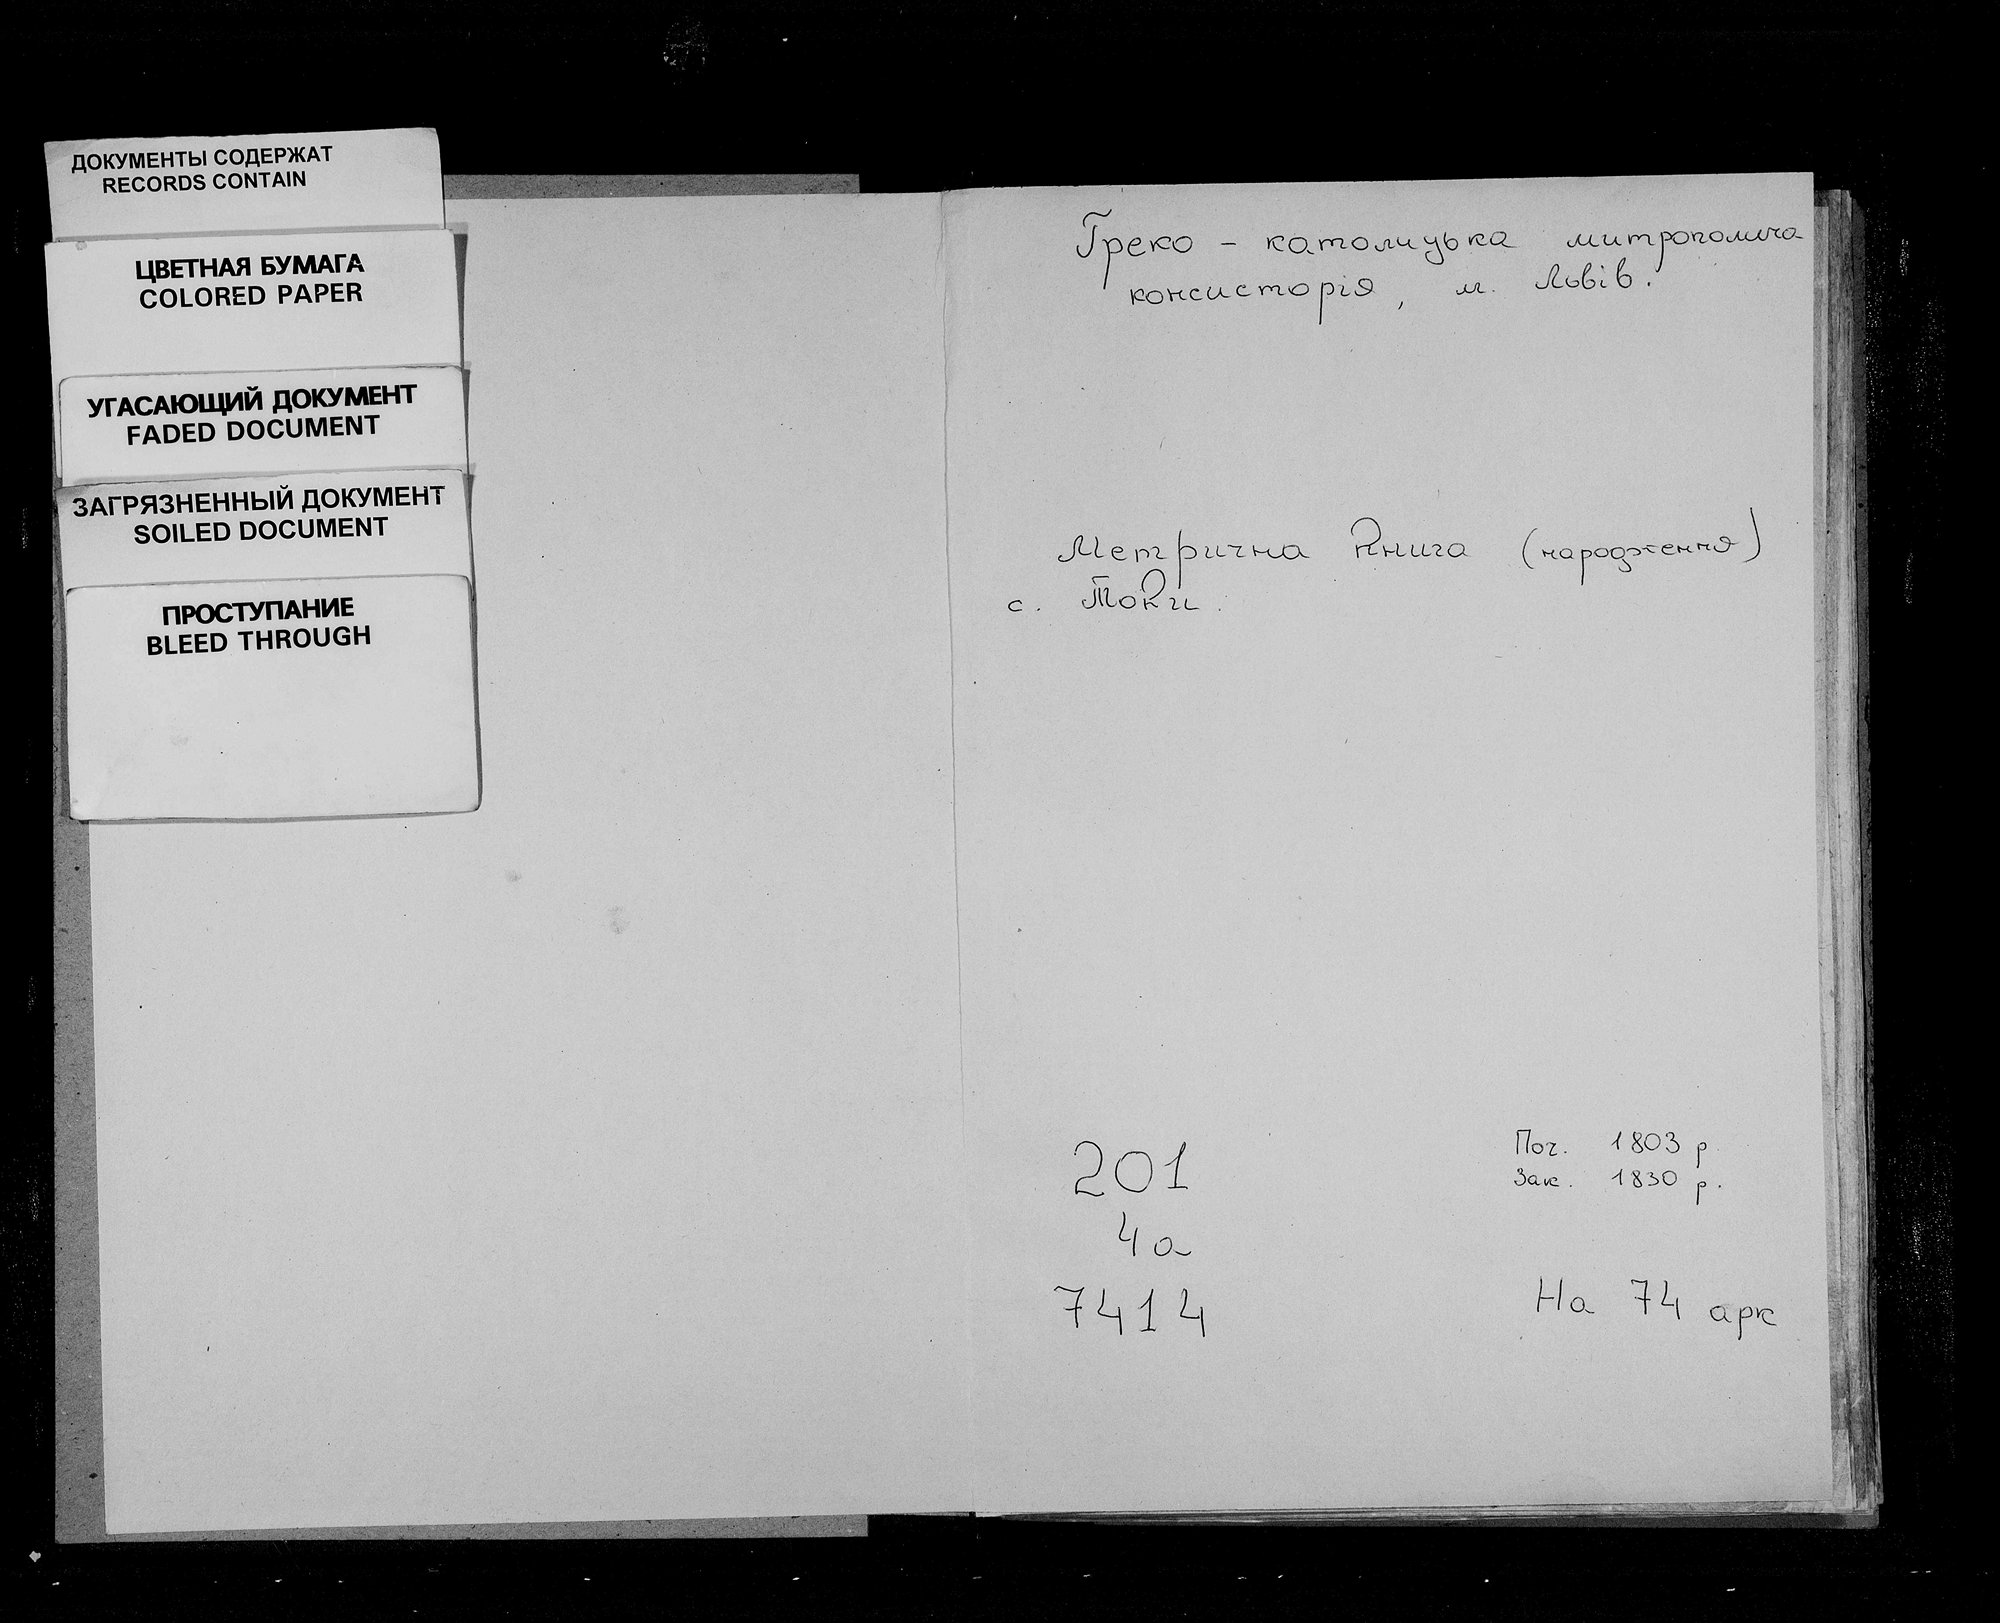 ДОКУМЕНТЫ СОДЕРЖАТ
RECORDS CONTAIN
ЦВЕТНАЯ БУМАГА
COLORED PAPER
УГАСАЮЩИЙ ДОКУМЕНТ
FADED DOCUMENT
ЗАГРЯЗНЕННЫЙ ДОКУМЕНТ
SOILED DOCUMENT
ПРОСТУПАНИЕ
BLEED THROUGH
Греко - католицька митрополича
консисторія, м. Львів.
Метрична книга (народження)
с. Токи.
201
4а
7414
Поч. 1803 р.
Зак. 1830 р.
На 74 арк